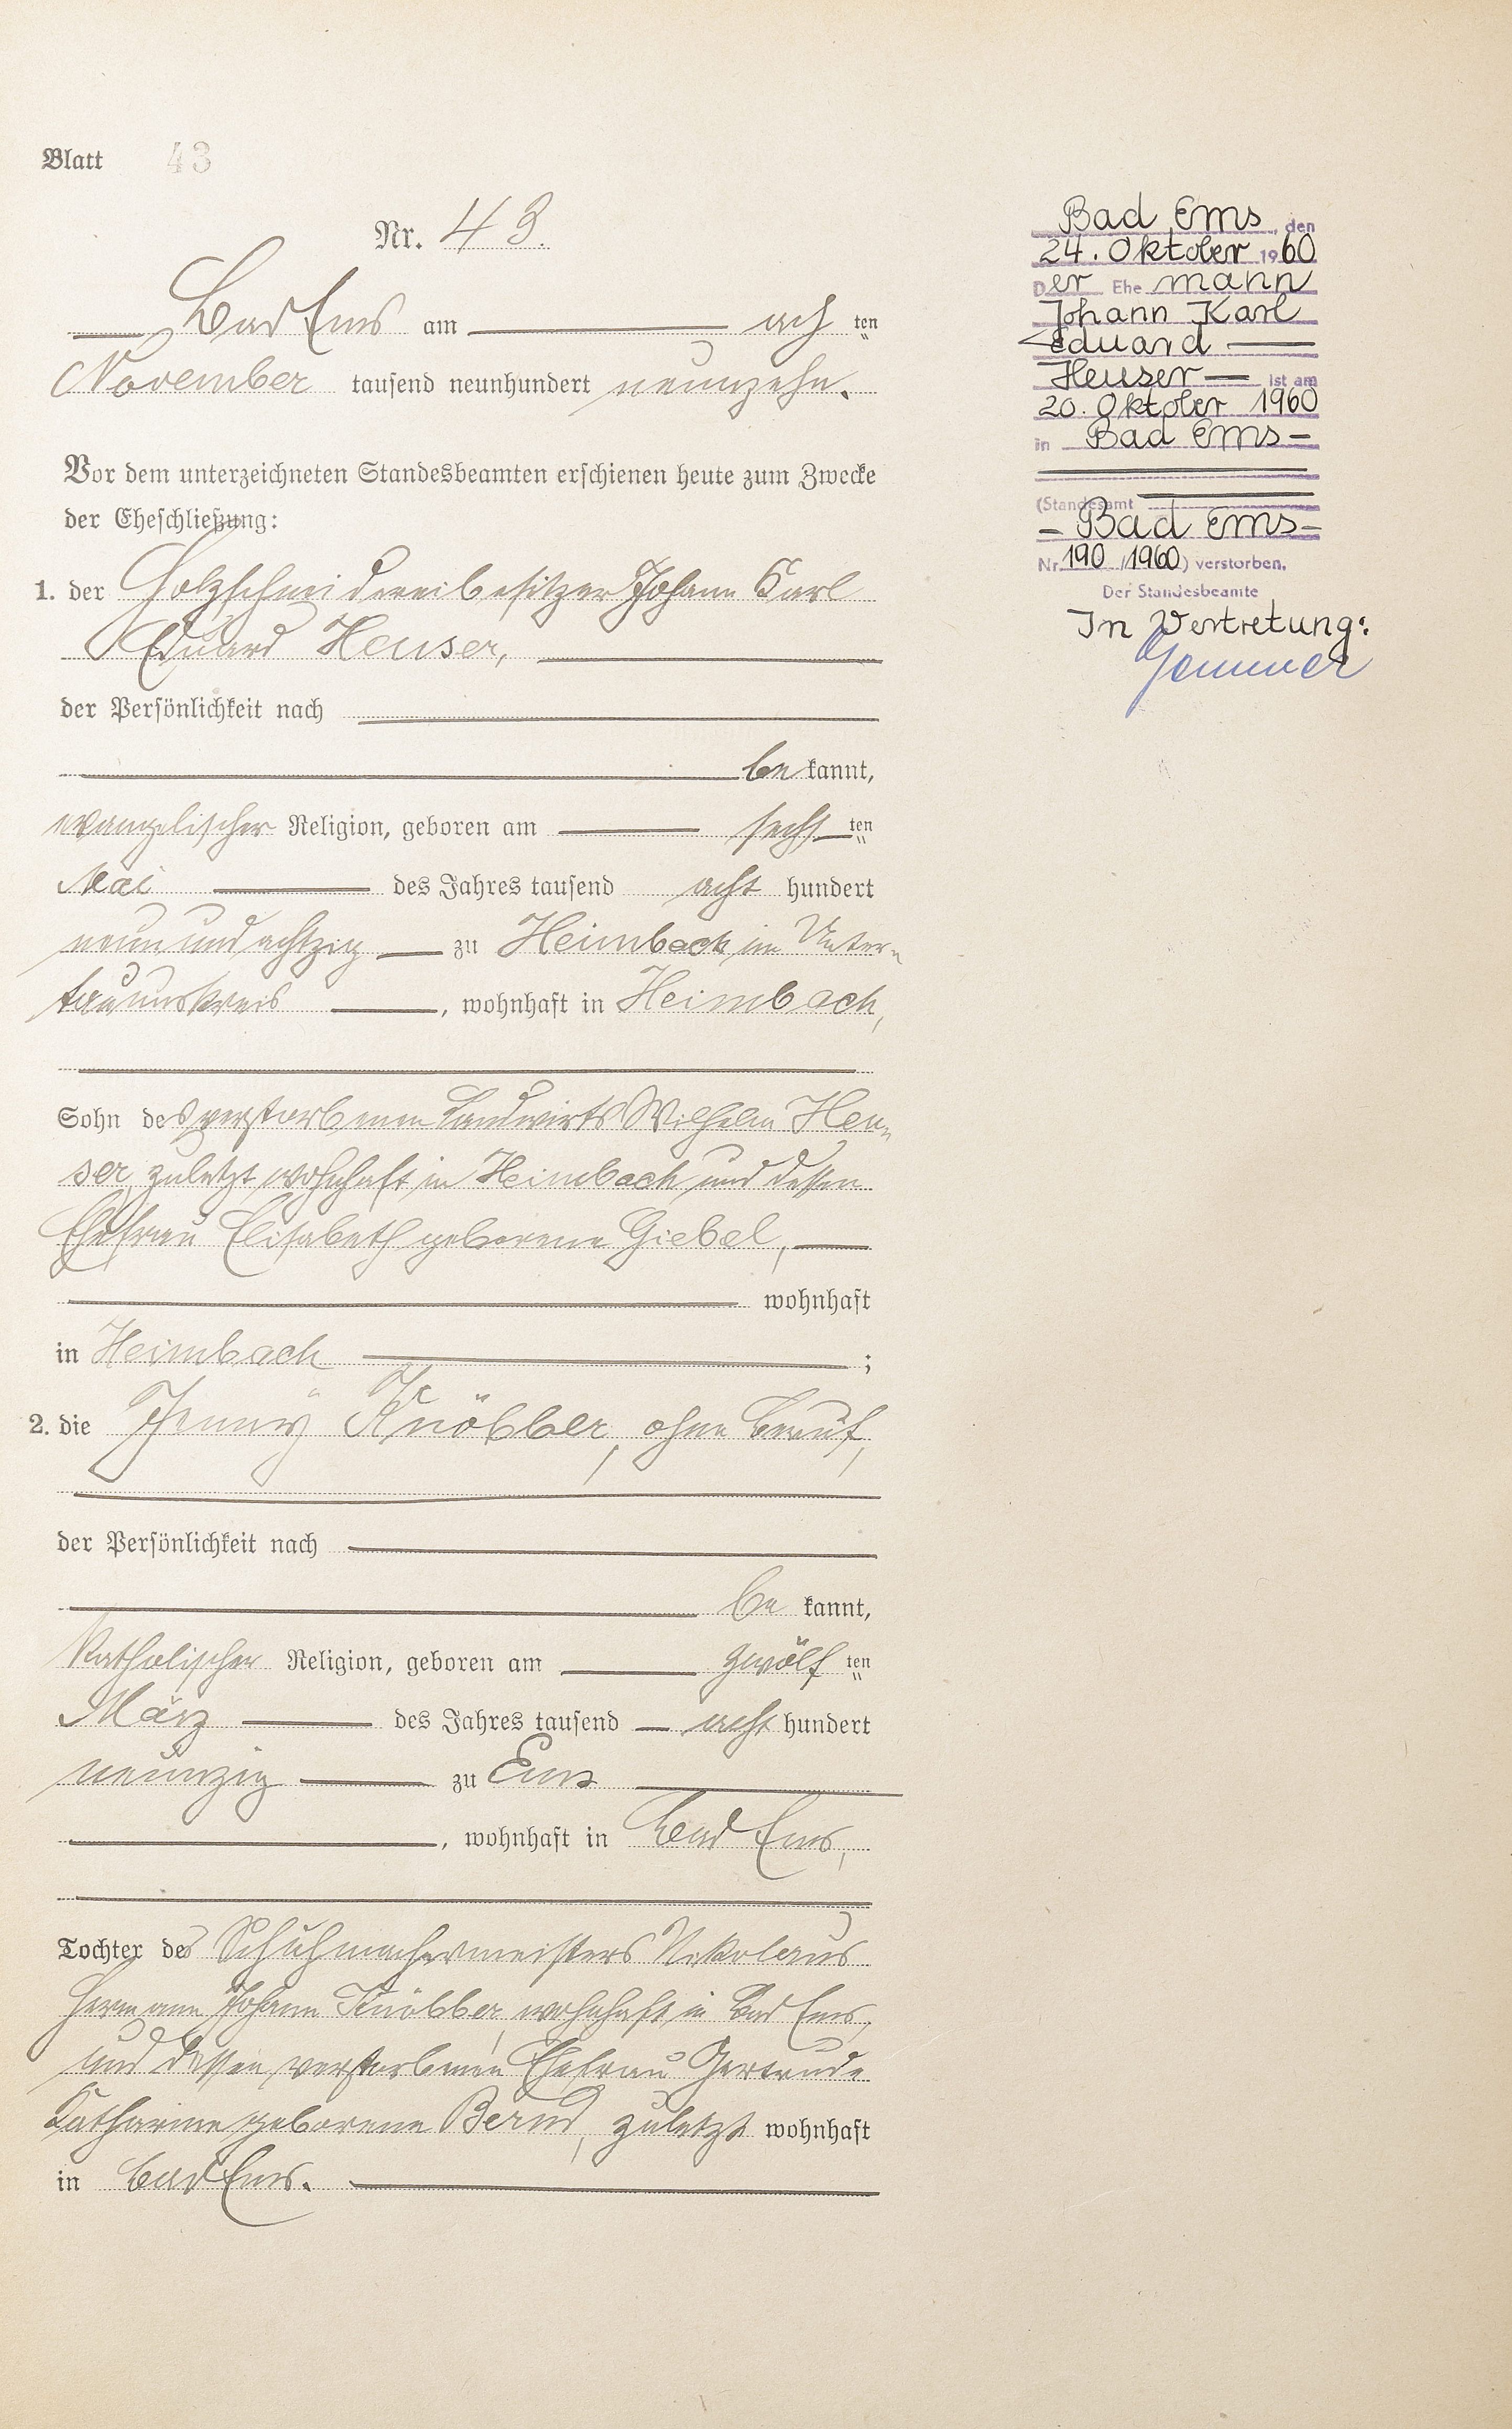 Blatt 43
Nr. 43.
Bad Ems am ach ten
November tausend neunhundert neunzehn.
Vor dem unterzeichneten Standesbeamten erschienen heute zum Zwecke
der Eheschließung:
1. der Holzschneidereibesitzer Johann Karl
Eduard Heuser,
der Persönlichkeit nach
be kannt,
evangelischer Religion, geboren am sechs ten
Mai des Jahres tausend acht hundert
neunundachtzig zu Heimbach im Unter-
taunuskreis, wohnhaft in Heimbach,
Sohn des verstorbenen Landwirts Wilhelm Heu-
ser, zuletzt wohnhaft in Heimbach und dessen
Ehefrau Elisabeth geborene Giebel,
wohnhaft
in Heimbach ;
2. die Jenny Knöbber, ohne Beruf,
der Persönlichkeit nach
be kannt,
katholischer Religion, geboren am zwölf ten
März des Jahres tausend acht hundert
neunzig zu Ems
, wohnhaft in Bad Ems,
Tochter des Schuhmachermeisters Nikolaus
Hermann Johann Knöbber, wohnhaft in Bad Ems,
und dessen verstorbenen Ehefrau Gertrude
Katharine geborene Bernd, zuletzt wohnhaft
in Bad Ems.
Bad Ems, den
24. Oktober 1960
Der Ehemann
Johann Karl
Eduard
Heuser ist am
20. Oktober 1960
in Bad Ems
(Standesamt
Bad Ems
Nr. 190 /1960) verstorben.
Der Standesbeamte
In Vertretung: